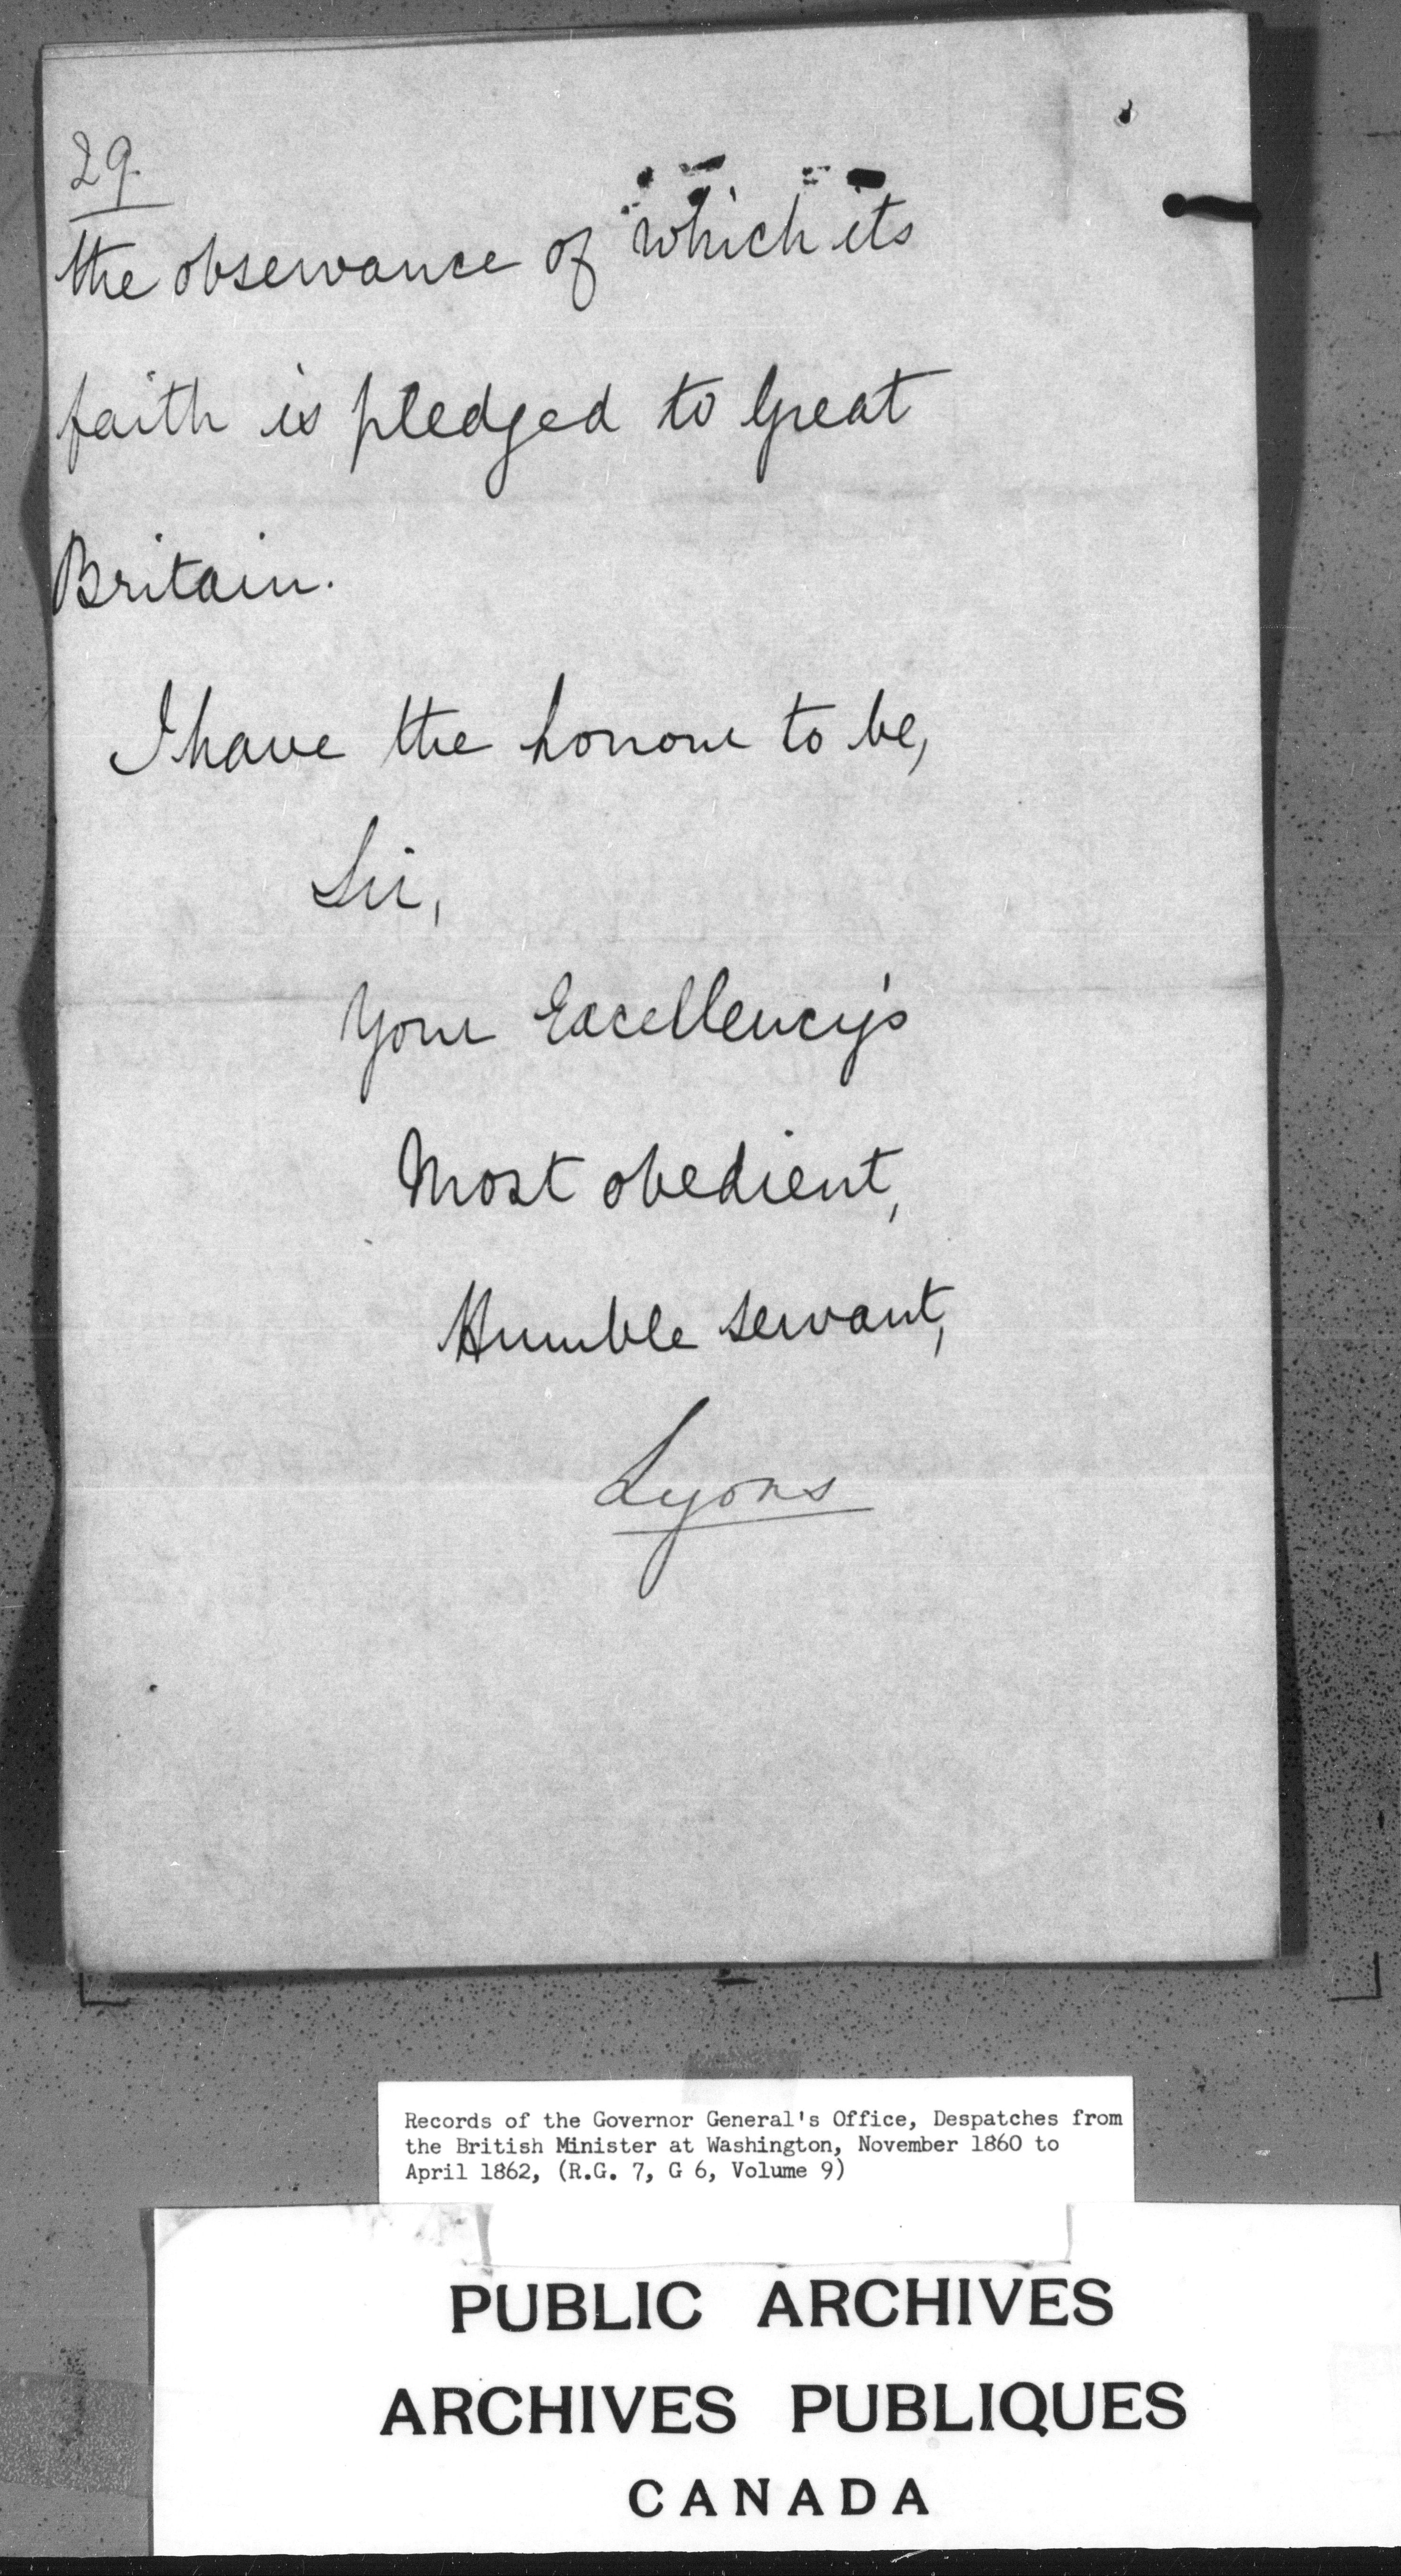 29.
the observance of which its
faith is pledged to Great
Britain.
I have the honour to be,
Sir,
Your Excellency's
Most obedient,
Humble servant,
Lyons
Records of the Governor General's Office, Despatches from
the British Minister at Washington, November 1860 to
April 1862, (R.G. 7, G 6, Volume 9)
PUBLIC ARCHIVES
ARCHIVES PUBLIQUES
CANADA